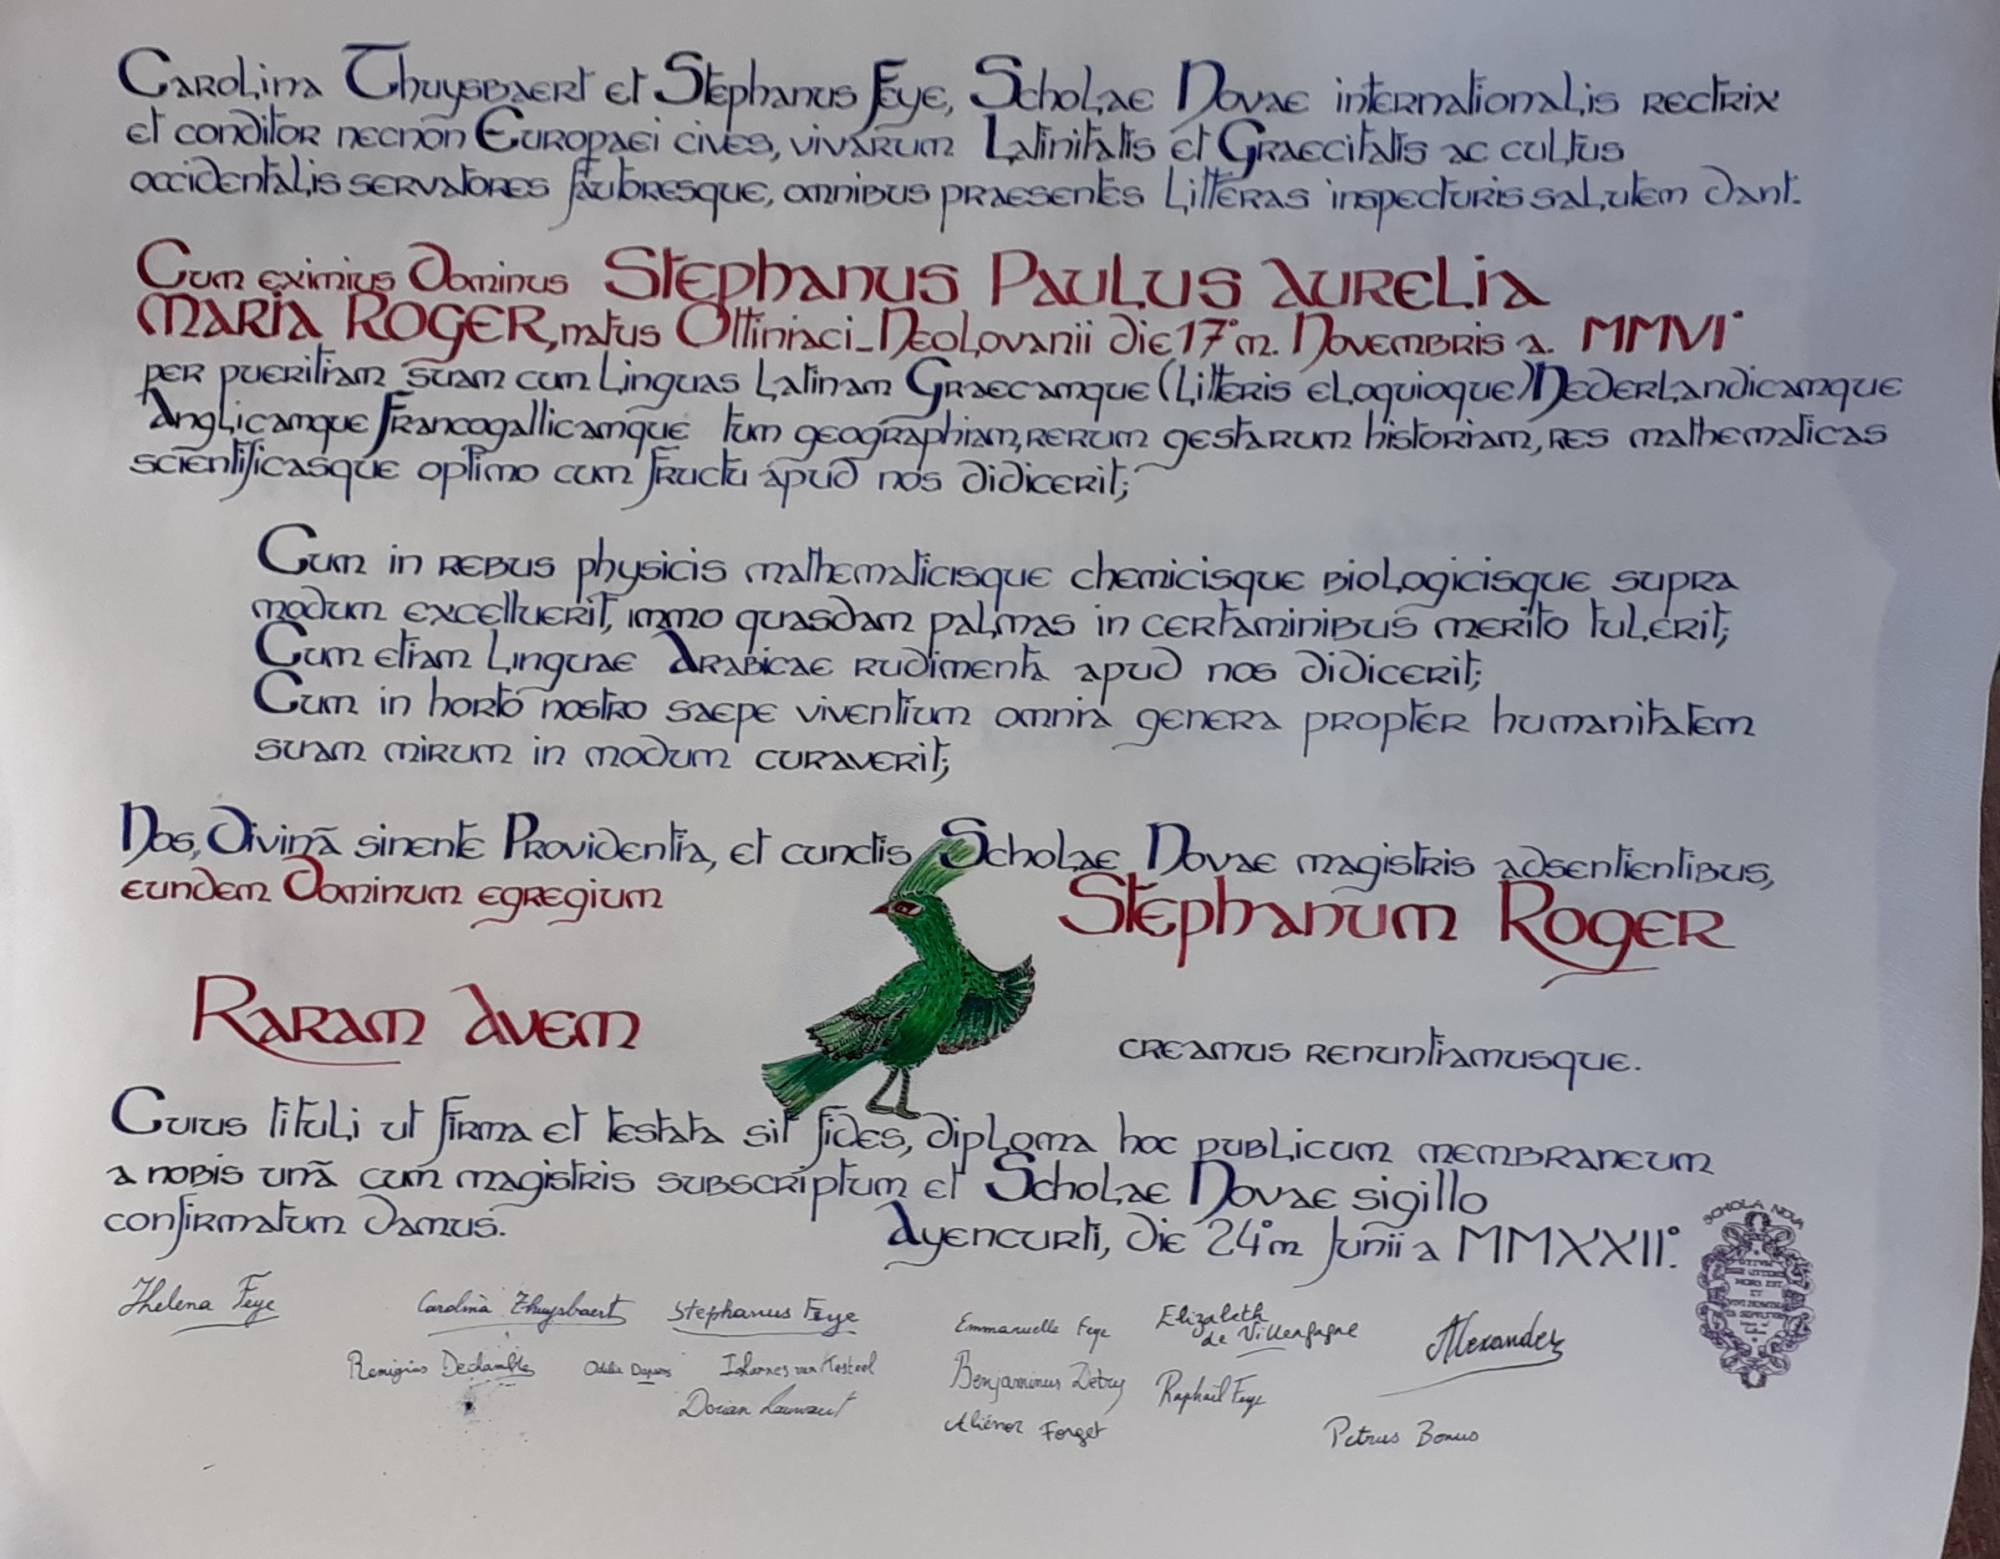 Carolina Thuysbaert et Stephanus Feye, Scholae Novae internationalis rectrix
et conditor necnōn Europaei cives, vivarum Latinitatis et Graecitatis ac cultus
occidentalis servatores fautoresque, omnibus praesentes Litteras inspecturis salutem dant.
Cum eximius Dominus Stephanus Paulus Aurelia
Maria Roger, natus Ottiniaci-Neolovanii die 17° m. Novembris a. MMVI°
per pueritiam suam cum linguas Latinam Graecamque (litteris eloquioque) Nederlandicamque
Anglicamque Francogallicamque tum geographiam, rerum gestarum historiam, res mathematicas
scientificasque optimo cum fructu apud nos didicerit;
Cum in rebus physicis mathematicisque chemicisque biologicisque supra
modum excelluerit, immo quasdam palmas in certaminibus merito tulerit;
Cum etiam Linguae Arabicae rudimenta apud nos didicerit;
Cum in horto nostro saepe viventium omnia genera propter humanitatem
suam mirum in modum curaverit;
Nos, Divinā sinente Providentia, et cunctis Scholae Novae magistris adsentientibus,
eundem Dominum egregium Stephanum Roger
Raram Avem creamus renuntiamusque.
Cuius tituli ut firma et testata sit fides, diploma hoc publicum membraneum
a nobis unā cum magistris subscriptum et Scholae Novae sigillo
confirmatum damus. Ayencurti, die 24° m Junii a MMXXII°.
SCHOLA NOVA
Helena Feye Carolina Thuysbaert Stephanus Feye Emmanuelle Feye Elizabeth de Villenfagne Alexander
Remigius Declamble Iohannes van Kasteel Benjaminus Detry Raphaël Feye
Dorian Aliénor Forget Petrus Bonus